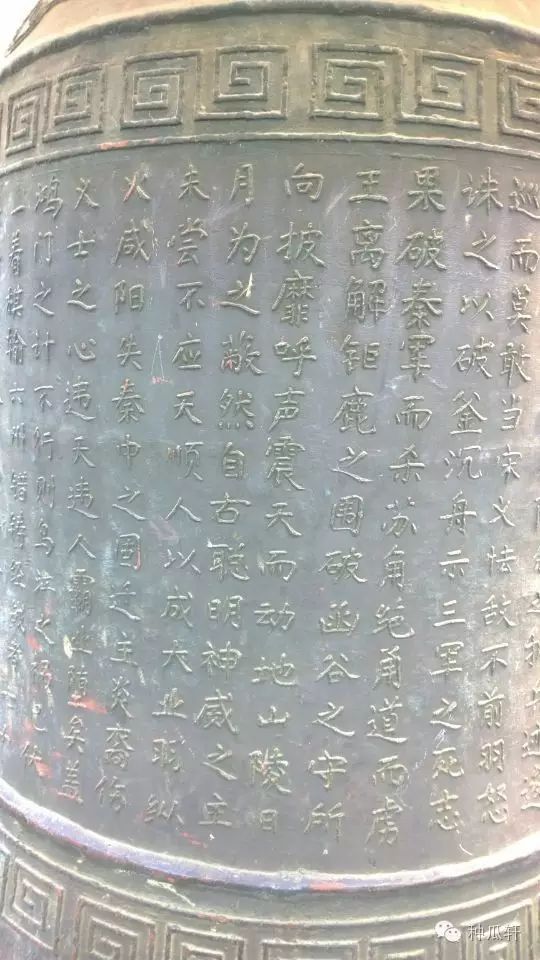 巡而莫敢当宋义怯敌不前羽怒
诛之以破釜沉舟示三军之死志
果破秦军而杀苏角绝甬道而虏
王离解钜鹿之围破函谷之守所
向披靡呼声震天而动地山陵日
月为之蔽然自古聪明神威之主
未尝不应天顺人以成大业羽纵
火咸阳失秦中之固迁主炎裔伤
义士之心违天违人霸业堕矣盖
鸿门之计不行则乌江之祸已
一着棋输六州错铸
种瓜轩